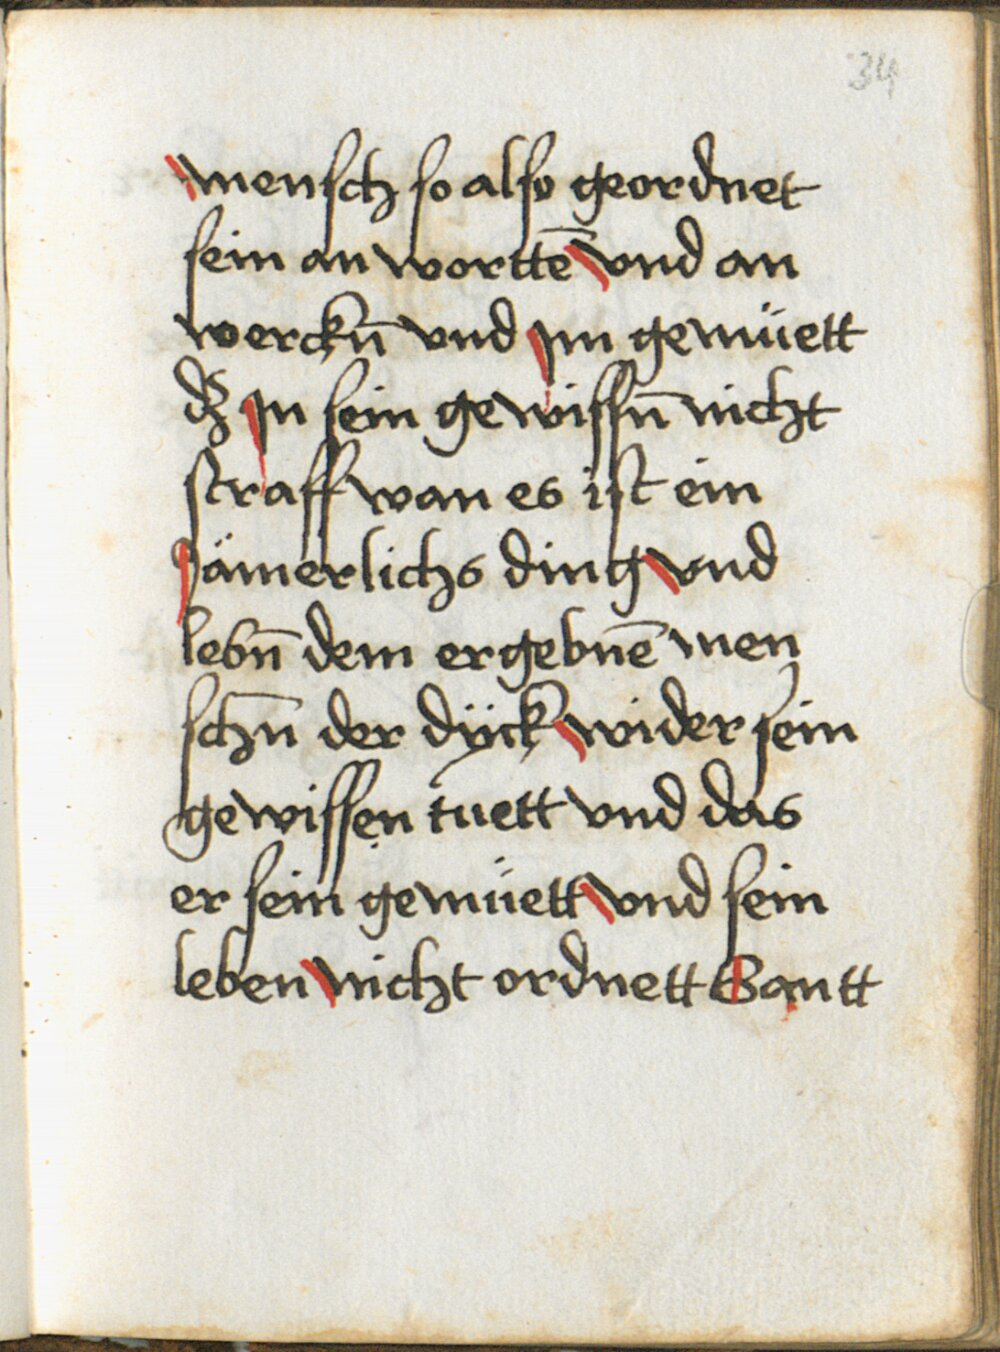 34
mensch so also geordnet
sein an worttē vnd an
werckn̄ vnd jm gemüett
dz jn sein gewissn̄ nicht
straff wan es ist ein
jämerlichs ding vnd
lebn̄ dem ergebnē men
schn̄ der dÿck wider sein
gewissen tuett vnd das
er sein gemüett vnd sein
leben nicht ordnett Santt